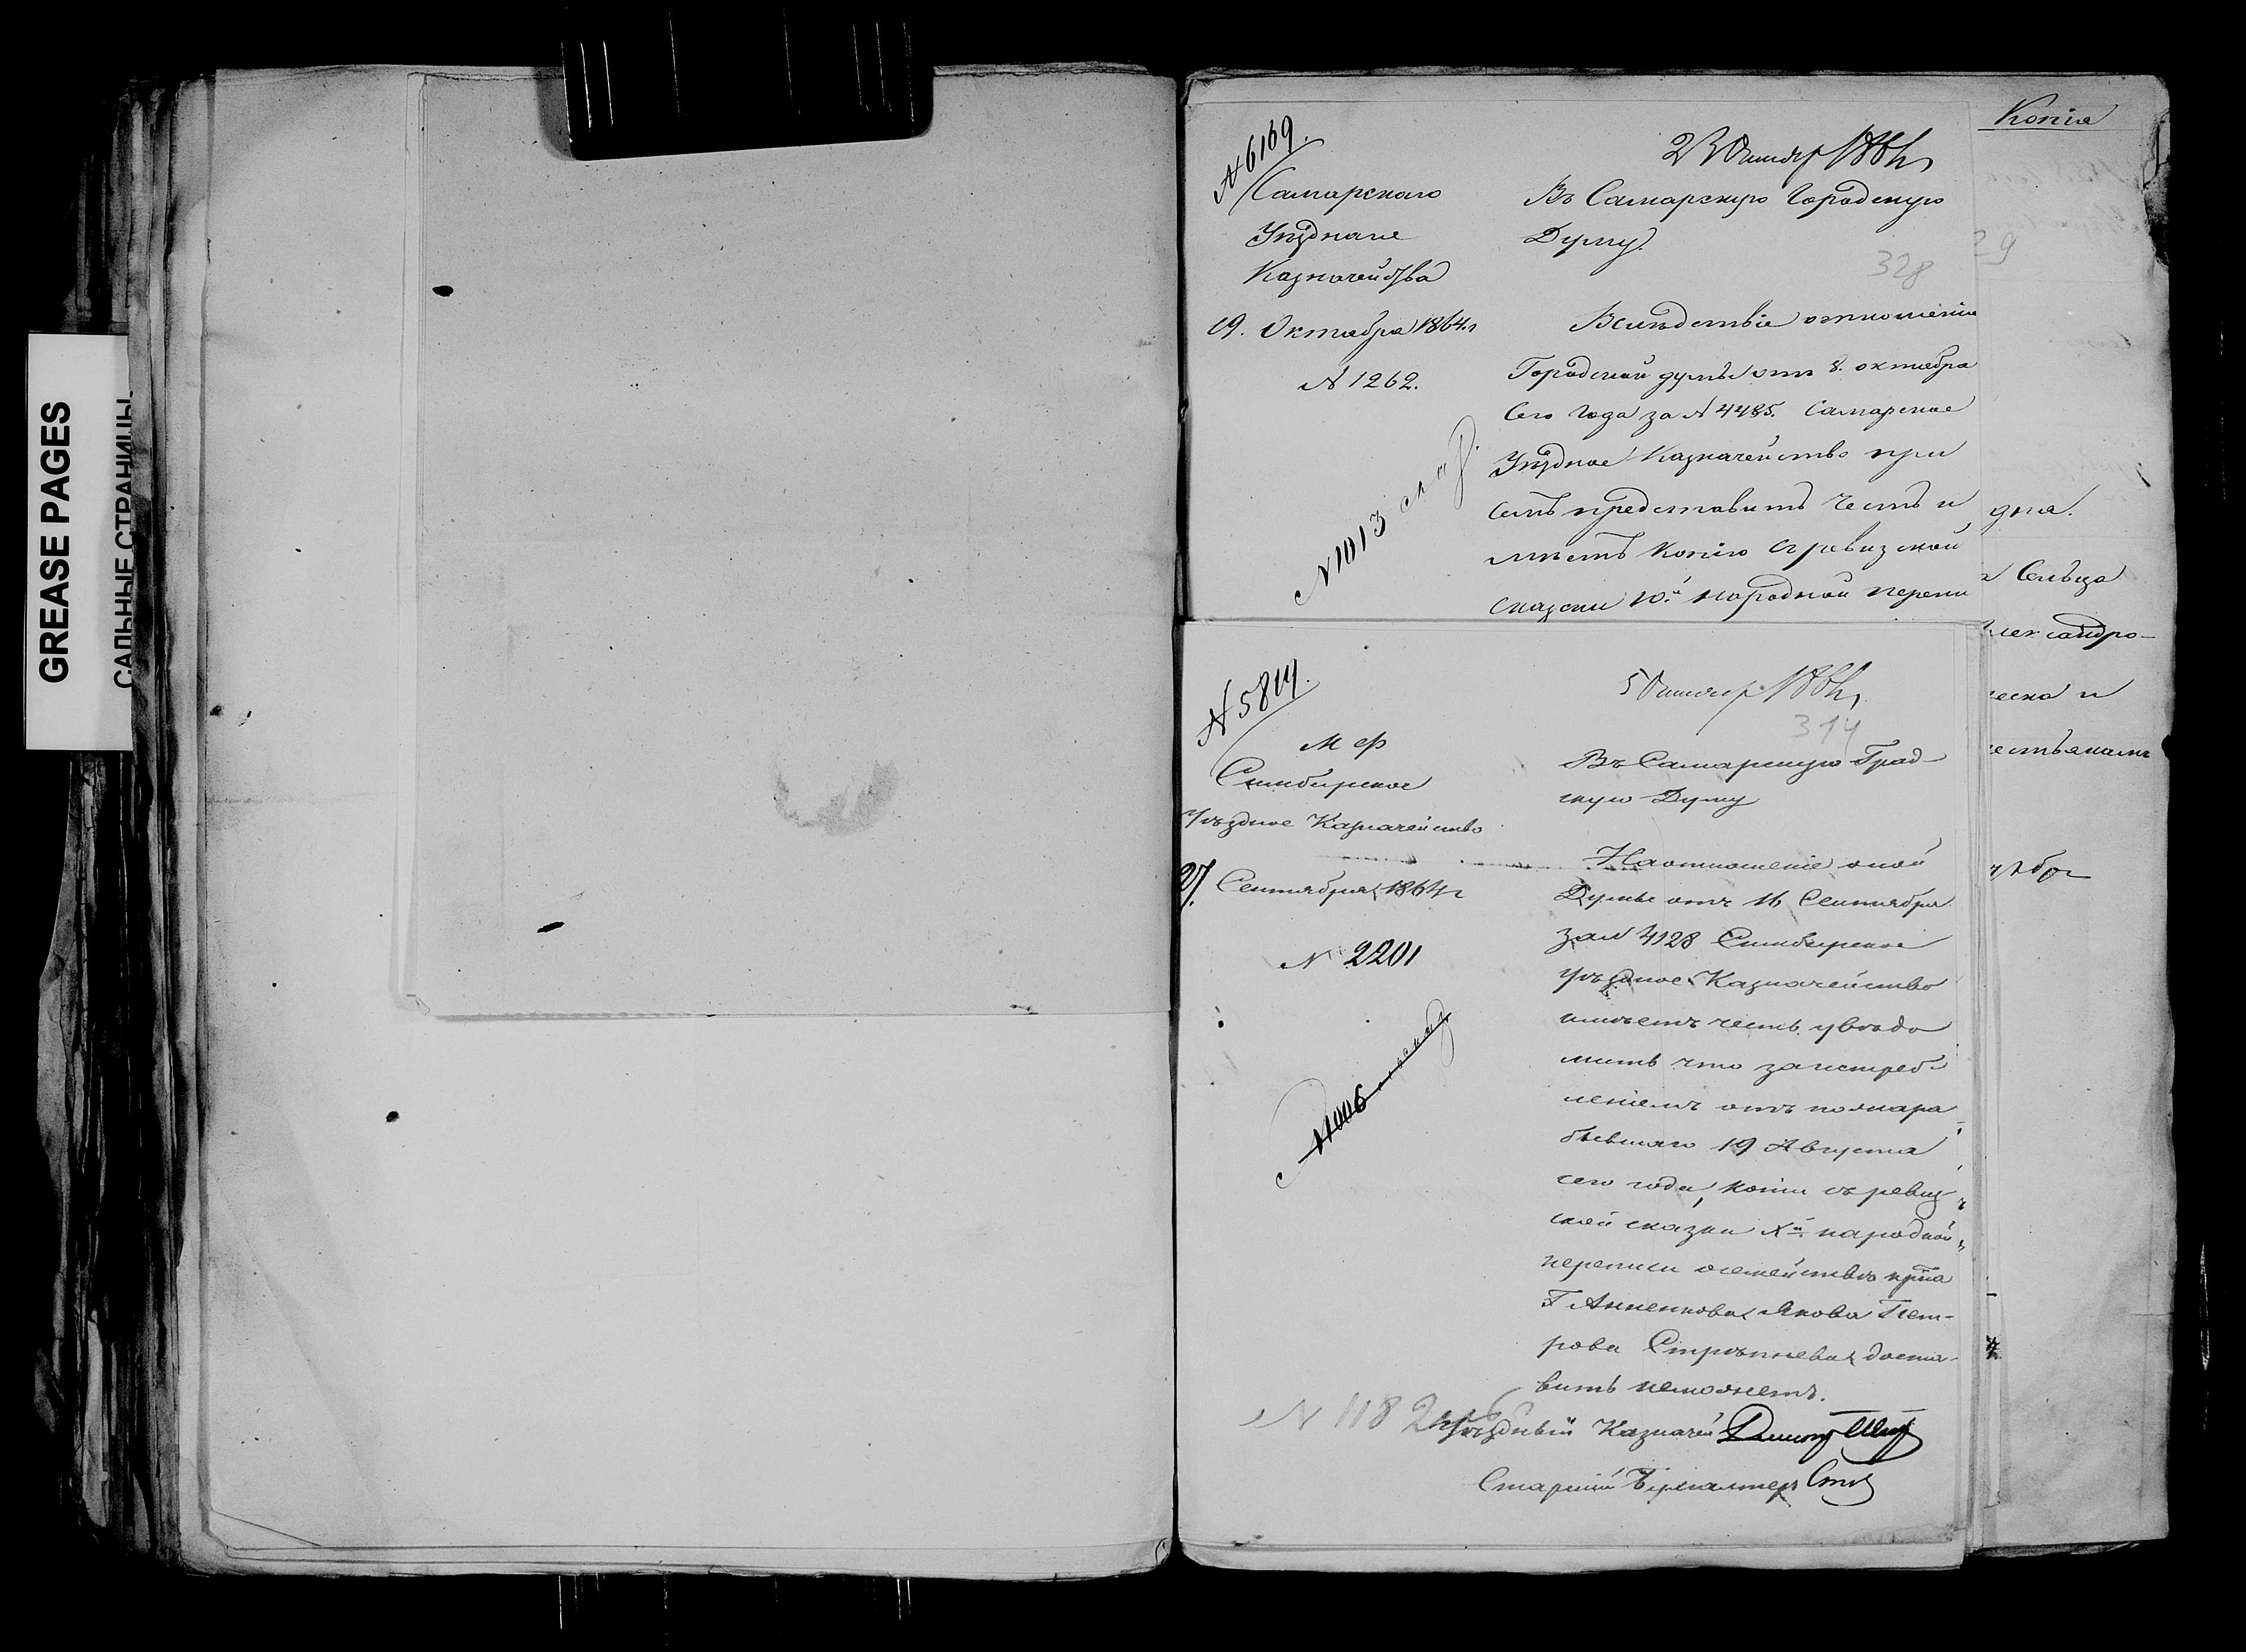 GREASE PAGES
САЛЬНЫЕ СТРАНИЦЫ
№ 6169.
Самарскаго
Уѣзднаго
Казначейства
19. Октября 1864г
№ 1262.
№ 1013
23 Октябр 1864
Въ Самарскую Городскую
Думу.
328
Вслѣдствіе отношенія
Городской думы отъ 8. октября
сего года за № 4485. Самарское
Уѣздное Казначейство при
семъ представить честь и
мѣетъ копію съ ревизской
сказки 10й народной перепи
№ 5819.
М Ф
Симбирское
Уѣздное Казначейство
27. Сентября 1864г
№ 2201
№ 1006
5 Октябр 1864
314
Въ Самарскую Град-
скую Думу
На отношеніе оной
Думы отъ 16 Сентября
за № 4128 Симбирское
Уѣздное Казначейство
имѣетъ честь увѣдо
мить что за истреб
леніемъ отъ пожара
бывшаго 19 Августа
сего года, копіи съ ревиз
ской сказки Xй народной
переписи о семействѣ крна
Г Анненкова Якова Пет-
рова Стрѣпнева доста-
вить неможетъ.
№ 1182
Уѣздный Казначей
Старшій Бухгалтеръ
Копія
29
дня.
а Сельца
Александро-
ческа и
естьянамъ